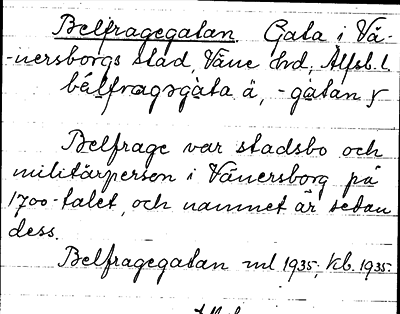 Belfragegatan. Gata i Vä-
-nersborgs stad, Väne hd, Älfsb. l.
bälfragsgata ä, -gatan γ
Belfrage var stadsbo och
militärperson i Vänersborg på
1700-talet, och namnet är sedan
dess.
Belfragegatan ml 1935; kb. 1935.